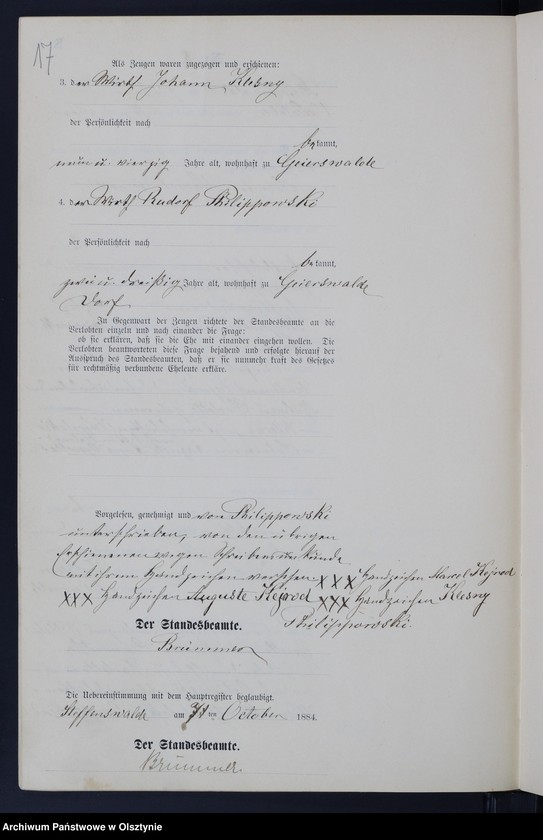 17
Als Zeugen waren zugezogen und erschienen:
3. der Wirth Johann Klosny
der Persönlichkeit nach
bekannt,
neun u. vierzig Jahre alt, wohnhaft zu Geierswalde
4. der Wirth Rudolf Philippowski
der Persönlichkeit nach
bekannt,
zwei u. dreißig Jahre alt, wohnhaft zu Geierswalde
Dorf
In Gegenwart der Zeugen richtete der Standesbeamte an die
Verlobten einzeln und nach einander die Frage:
ob sie erklären, daß sie die Ehe mit einander eingehen wollen. Die
Verlobten beantworteten diese Frage bejahend und erfolgte hierauf der
Ausspruch des Standesbeamten, daß er sie nunmehr kraft des Gesetzes
für rechtmäßig verbundene Eheleute erkläre.
Vorgelesen, genehmigt und von Philippowski
unterschrieben, von den übrigen
Erschienenen wegen Schreibensunkunde
mit ihrem Handzeichen versehen XXX Handzeichen Marcel Kojrod
XXX Handzeichen Auguste Kojrod XXX Handzeichen Klosny
Philippowski.
Der Standesbeamte.
Brümmer
Die Uebereinstimmung mit dem Hauptregister beglaubigt.
Steffenswalde am ten October 1884.
Der Standesbeamte.
Brümmer
Archiwum Państwowe w Olsztynie